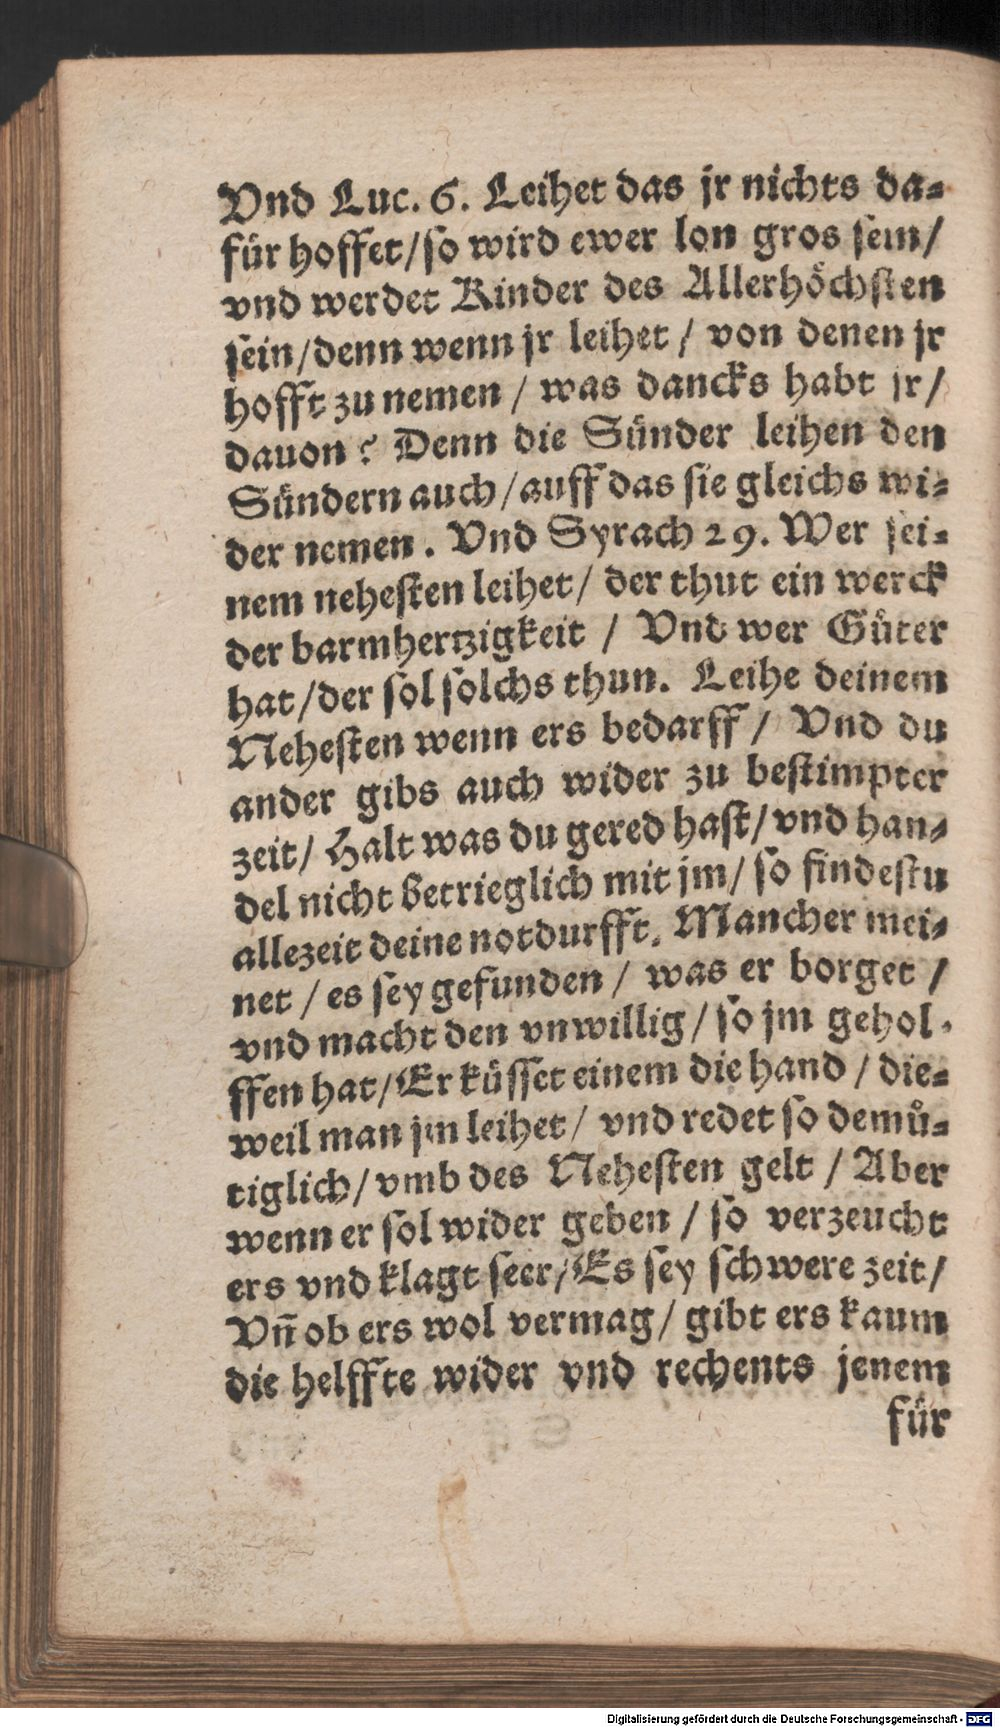 Vnd Luc. 6. Leihet das jr nichts da-
für hoffet/so wird ewer lon gros sein/
vnd werdet Kinder des Allerhöchsten
sein/denn wenn jr leihet / von denen jr
hofft zu nemen / was dancks habt jr/
dauon? Denn die Sünder leihen den
Sündern auch/auff das sie gleichs wi-
der nemen. Vnd Syrach 29. Wer sei-
nem nehesten leihet/ der thut ein werck
der barmhertzigkeit / Vnd wer Gůter
hat/der sol solchs thun. Leihe deinem
Nehesten wenn ers bedarff / Vnd du
ander gibs auch wider zu bestimpter
zeit/ Halt was du gered hast/vnd han-
del nicht betrieglich mit jm/ so findestu
allezeit deine notdurfft. Mancher mei-
net / es sey gefunden / was er borget /
vnd macht den vnwillig/so jm gehol-
ffen hat/Er küsset einem die hand / die-
weil man jm leihet/ vnd redet so demů-
tiglich/vmb des Nehesten gelt / Aber
wenn er sol wider geben / so verzeucht
ers vnd klagt seer/Es sey schwere zeit/
Vn̄ ob ers wol vermag/ gibt ers kaum
die helffte wider vnd rechents jenem
für
Digitalisierung gefördert durch die Deutsche Forschungsgemeinschaft - DFG